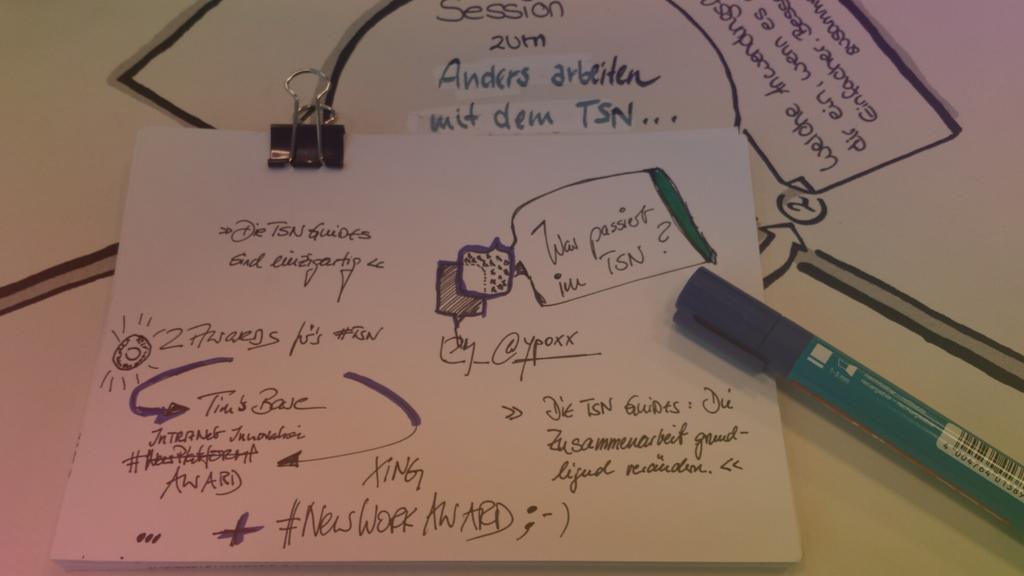 Session
zum
Anders arbeiten
mit dem TSN...
Welche Anwendung
dir ein, wenn es
einfacher
zusammen
2
»Die TSN Guides
sind einzigartig«
Was passiert
im TSN?
by @ypoxx
2 Awards für's #TSN
Tim's Base
Internet Innovation
#
Award
Xing
» Die TSN Guides: Die
Zusammenarbeit grund-
legend verändern. «
... + #NewWork Award ;-)